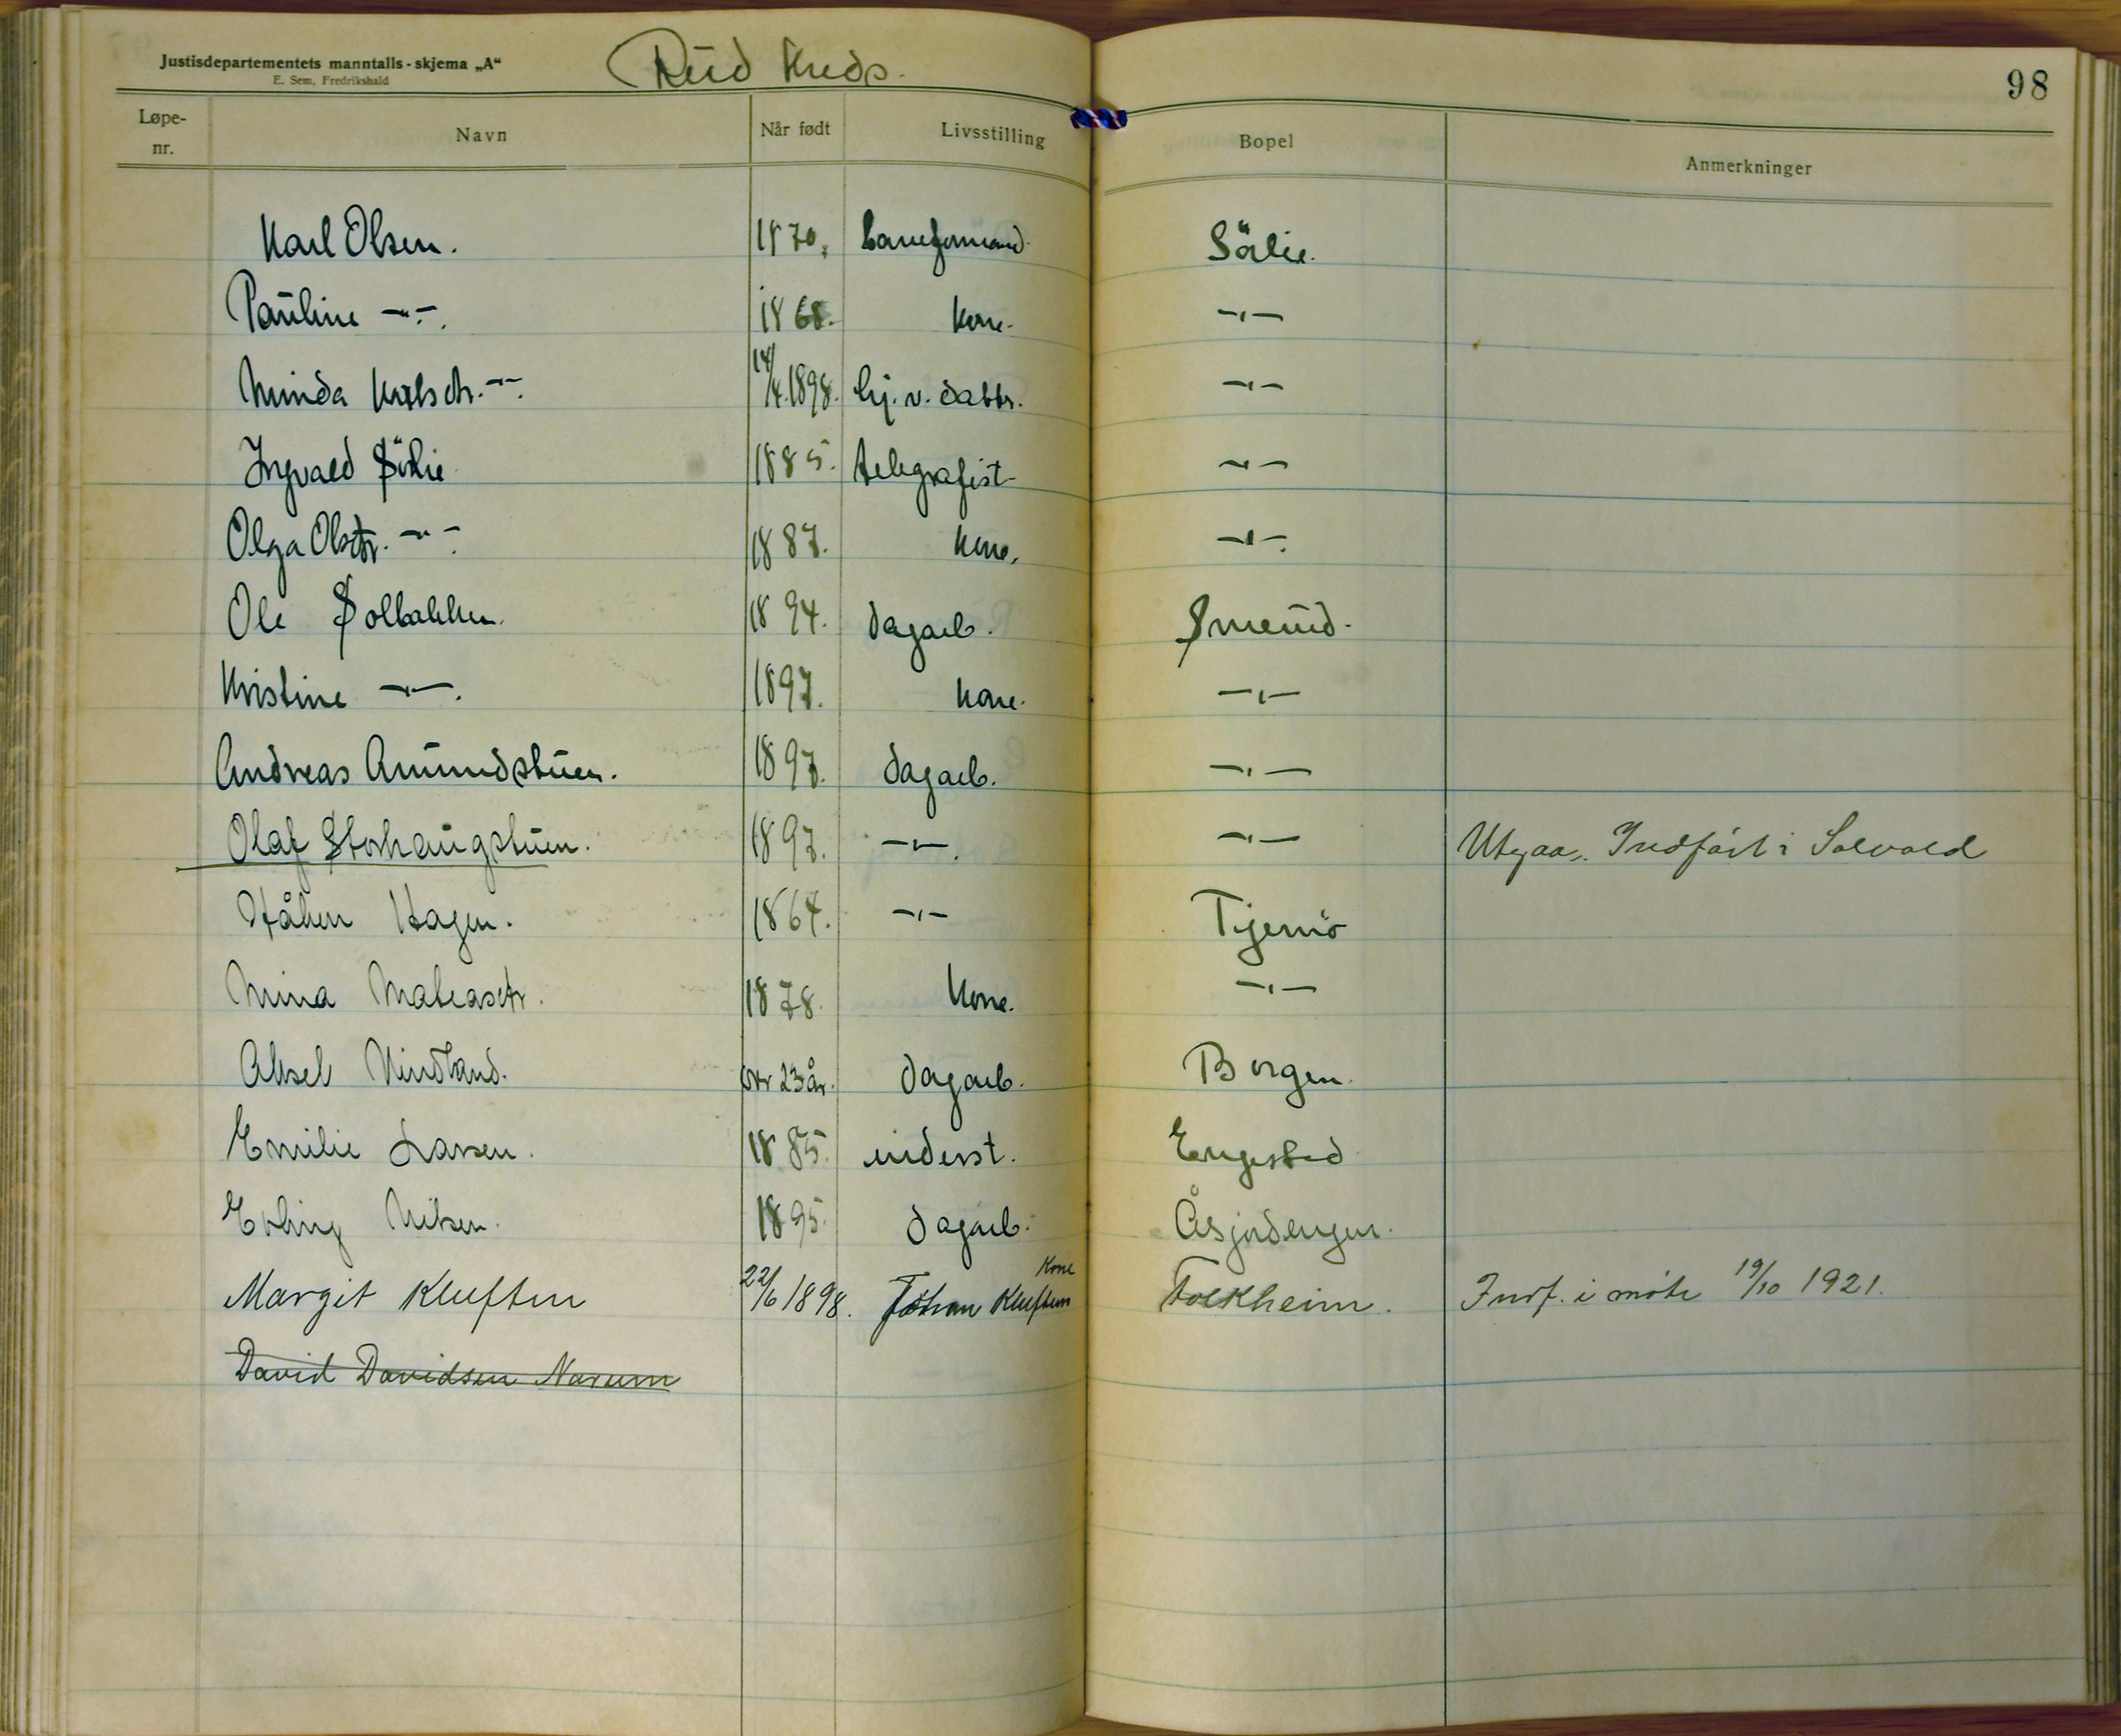 Justisdepartementets manntalls-skjema „A“
E. Sem, Fredrikshald
Rud Kreds.
98
Løpe-nr. Navn Når født Livsstilling Bopel Anmerkninger
Karl Olsen. 1870. baneformand. Sölie.
Pauline —"—. 1868. kone. —"—
Minda Karlsdtr. —"—. 14/4.1898. hj.v. datter. —"—
Ingvald Sölie 1885. telegrafist —"—
Olga Olsdtr. —"— 1887. kone. —"—.
Ole Solbakken. 1894. dagarb. Smerud.
Kristine —"—. 1897. kone. —"—
Andreas Amundstuen. 1897. dagarb. —"—
Olaf Storhaugstuen. 1897. —"—. —"— Utgaar. Indført i Solvold
Håken Hagen. 1864. —"— Tjernö
Mina Mateasdtr. 1878. kone. —"—
Aksel Nindland. over 23 år. dagarb. Borgen.
Emilie Larsen. 1885. inderst. Engestad
Erling Nilsen. 1895. dagarb. Åsjordengen.
Margit Kluften 22/6 1898. Kone Johan Kluften Folkheim. Indf. i møte 19/10 1921.
David Davidsen Narum